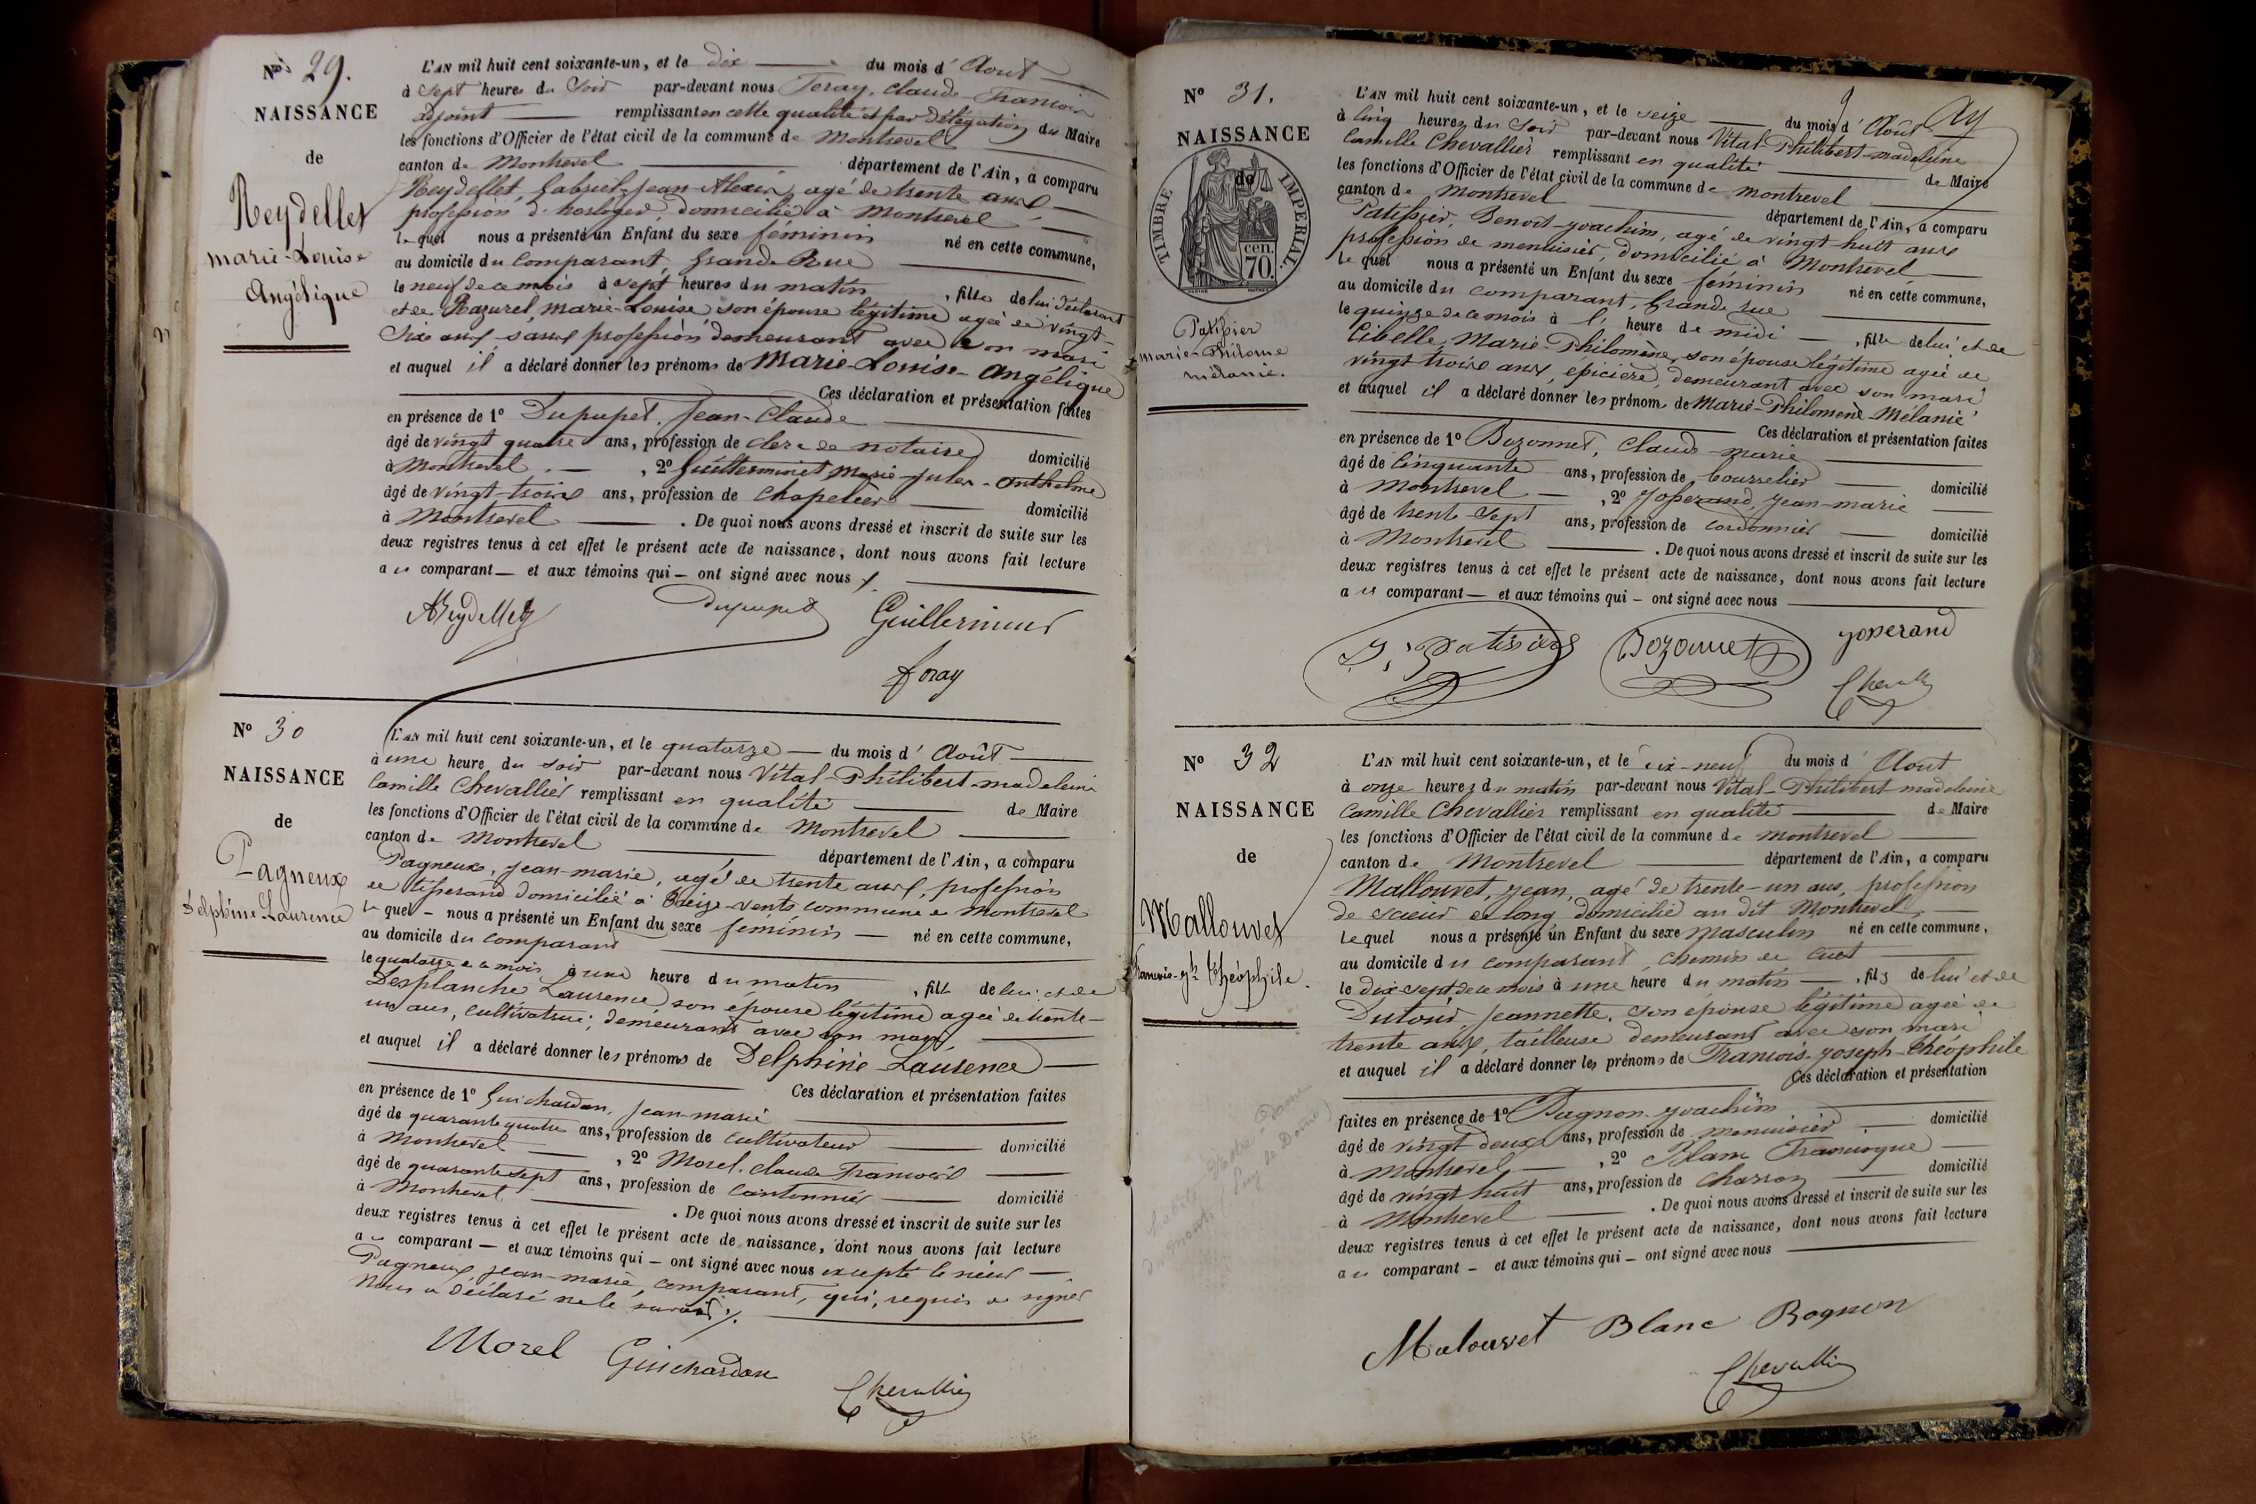 N° 29.
NAISSANCE
de
Reydellet
marie-Louise
Angélique
L'AN mil huit cent soixante-un, et le dix du mois d' Aout
à sept heures du soir par-devant nous Foray, Claude François
adjoint remplissant en cette qualité et par délégation du Maire
les fonctions d'Officier de l'état civil de la commune de Montrevel
canton de Montrevel département de l'Ain, a comparu
Reydellet, Gabriel-Jean-Alexis, agé de trente ans,
profession d'horloger, domicilié à Montrevel
lequel nous a présenté un Enfant du sexe féminin né en cette commune,
au domicile du comparant, Grande Rue
le neuf de ce mois à sept heures du matin, fille de lui déclarant
et de Razurel, marie-Louise, son épouse légitime agée de vingt-
six ans, sans profession demeurant avec son mari
et auquel il a déclaré donner les prénoms de Marie-Louise-Angélique
Ces déclaration et présentation faites
en présence de 1° Dupupet, Jean-Claude
âgé de vingt quatre ans, profession de clerc de notaire domicilié
à Montrevel, 2° Guillerminet Marie-Jules-Anthelme
âgé de vingt-trois ans, profession de chapelier domicilié
à Montrevel. De quoi nous avons dressé et inscrit de suite sur les
deux registres tenus à cet effet le présent acte de naissance, dont nous avons fait lecture
au comparant et aux témoins qui ont signé avec nous
AReydellet Dupupet Guillerminet
foray
N° 30
NAISSANCE
de
Pagneux
Delphine Laurence
L'AN mil huit cent soixante-un, et le quatorze du mois d' Août
à une heure du soir par-devant nous Vital-Philibert-madeleine
Camille Chevallier remplissant en qualité de Maire
les fonctions d'Officier de l'état civil de la commune de Montrevel
canton de Montrevel département de l'Ain, a comparu
Pagneux, Jean-marie, agé de trente ans, profession
de tisserand domicilié à Seize-vents commune de Montrevel
lequel nous a présenté un Enfant du sexe féminin né en cette commune,
au domicile du comparant
le quatorze de ce mois à une heure du matin, fille de lui et de
Desplanche Laurence son épouse légitime agée de trente-
un ans, cultivatrice, demeurant avec son mari,
et auquel il a déclaré donner les prénoms de Delphine-Laurence
Ces déclaration et présentation faites
en présence de 1° Guichardan, Jean-marie
âgé de quarante quatre ans, profession de cultivateur domicilié
à Montrevel, 2° Morel, Claude François
âgé de quarante sept ans, profession de cantonnier domicilié
à Montrevel. De quoi nous avons dressé et inscrit de suite sur les
deux registres tenus à cet effet le présent acte de naissance, dont nous avons fait lecture
au comparant et aux témoins qui ont signé avec nous excepté le sieur
Pagneux Jean-marie, comparant, qui, requis de signer
nous a déclaré ne le savoir
Morel Guichardan
Chevallier
N° 31.
NAISSANCE
de
TIMBRE IMPERIAL
70 cen.
Patissier
marie-Philomène
mélanie.
L'AN mil huit cent soixante-un, et le seize du mois d' Août
à cinq heures du soir par-devant nous Vital-Philibert-madeleine
Camille Chevallier remplissant en qualité de Maire
les fonctions d'Officier de l'état civil de la commune de Montrevel
canton de Montrevel département de l'Ain, a comparu
Patissier, Benoit-Joachim, agé de vingt huit ans
profession de menuisier, domicilié à Montrevel
lequel nous a présenté un Enfant du sexe féminin né en cette commune,
au domicile du comparant, Grande rue
le quinze de ce mois à l' heure de midi, fille de lui et de
Cibelle, Marie-Philomène, son épouse légitime agée de
vingt trois ans, épicière, demeurant avec son mari
et auquel il a déclaré donner les prénoms de Marie-Philomène-Mélanie
Ces déclaration et présentation faites
en présence de 1° Bozonnet, Claude-marie
âgé de cinquante ans, profession de bourrelier domicilié
à Montrevel, 2° Josserand, Jean-marie
âgé de trente sept ans, profession de cordonnier domicilié
à Montrevel. De quoi nous avons dressé et inscrit de suite sur les
deux registres tenus à cet effet le présent acte de naissance, dont nous avons fait lecture
au comparant et aux témoins qui ont signé avec nous
Patissier Bozonnet Josserand
Chevallier
N° 32
NAISSANCE
de
Mallouvet
François-Jh Théophile.
L'AN mil huit cent soixante-un, et le dix-neuf du mois d' Aout
à onze heures du matin par-devant nous Vital-Philibert madeleine
Camille Chevallier remplissant en qualité de Maire
les fonctions d'Officier de l'état civil de la commune de Montrevel
canton de Montrevel département de l'Ain, a comparu
Mallouvet, Jean, agé de trente-un ans, profession
de scieur de long domicilié au dit Montrevel,
lequel nous a présenté un Enfant du sexe masculin né en cette commune,
au domicile du comparant, chemin de Cuet
le dix-sept de ce mois à une heure du matin, fils de lui et de
Dutour, Jeannette, son épouse légitime agée de
trente ans, tailleuse demeurant avec son mari
et auquel il a déclaré donner les prénoms de François-Joseph-Théophile
Ces déclaration et présentation
faites en présence de 1° Bagnon Joachim domicilié
âgé de vingt deux ans, profession de menuisier
à Montrevel, 2° Blanc Francisque
âgé de vingt huit ans, profession de charron domicilié
à Montrevel. De quoi nous avons dressé et inscrit de suite sur les
deux registres tenus à cet effet le présent acte de naissance, dont nous avons fait lecture
au comparant et aux témoins qui ont signé avec nous
Malouvet Blanc Bognon
Chevallier